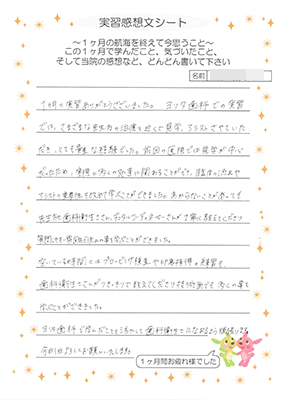 実習感想文シート
～1ヶ月の航海を終えて今思うこと～
この1ヶ月で学んだこと、気づいたこと、
そして当院の感想など、どんどん書いて下さい
名前
1ヶ月の実習ありがとうございました。ヨリタ歯科での実習
では、さまざまな患者さんの治療を近くで見学、アシストさせていた
だき、とても貴重な経験でした。前回の実習では見学が中心
だったため、実際に多くの処置に関わることができ、臨床の流れや
アシストの重要性を改めて学ぶことができました。わからないことがあっても
歯科衛生士さん、デンタルコーディネーターさんが丁寧に教えてくださり
質問しやすい
空いている時間にはプロービング検査や印象採得の練習を
歯科衛生士さんがつきっきりで教えてくださり技術面でも多くの事を
学ぶことができました。
ヨリタ歯科で学んだことを活かして歯科衛生士になれるよう頑張ります。
1ヶ月間お疲れ様でした